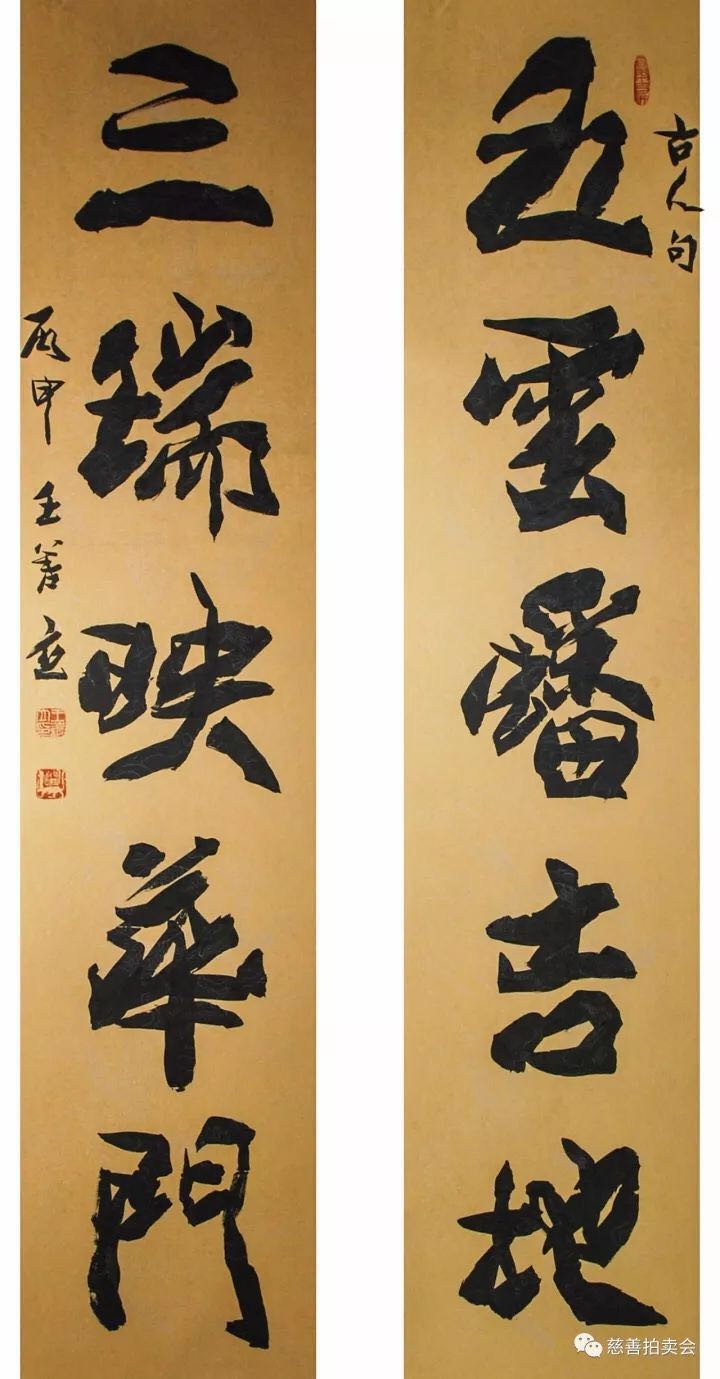 古人句
五雲蟠吉地
三瑞映華門
丙申 王
慈善拍卖会